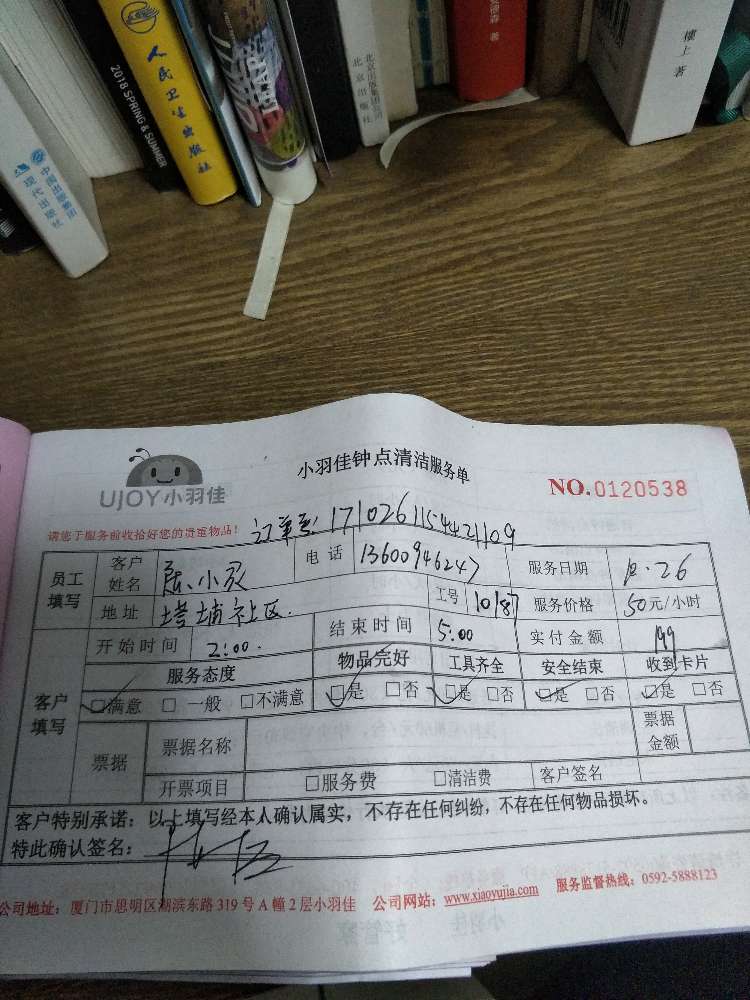 2018 SPRING & SUMMER
人民卫生出版社
中国出版集团
现代出版社
北京出版集团公司
北京出版社
著
楼上 著
UJOY小羽佳
小羽佳钟点清洁服务单
NO.0120538
请您于服务前收拾好您的贵重物品!
订单号: 1710261154421109
员工填写 客户姓名 小灵 电话 13600946247 服务日期 12.26
地址 塔埔社区. 工号 10187 服务价格 50元/小时
客户填写 开始时间 2:00. 结束时间 5:00 实付金额 199
服务态度 物品完好 工具齐全 安全结束 收到卡片
☑满意 □一般 □不满意 ☑是 □否 ☑是 □否 ☑是 □否 ☑是 □否
票据 票据名称 票据金额
开票项目 □服务费 □清洁费 客户签名
客户特别承诺:以上填写经本人确认属实,不存在任何纠纷,不存在任何物品损坏。
特此确认签名:
公司地址:厦门市思明区湖滨东路319号A幢2层小羽佳 公司网站:www.xiaoyujia.com 服务监督热线:0592-5888123